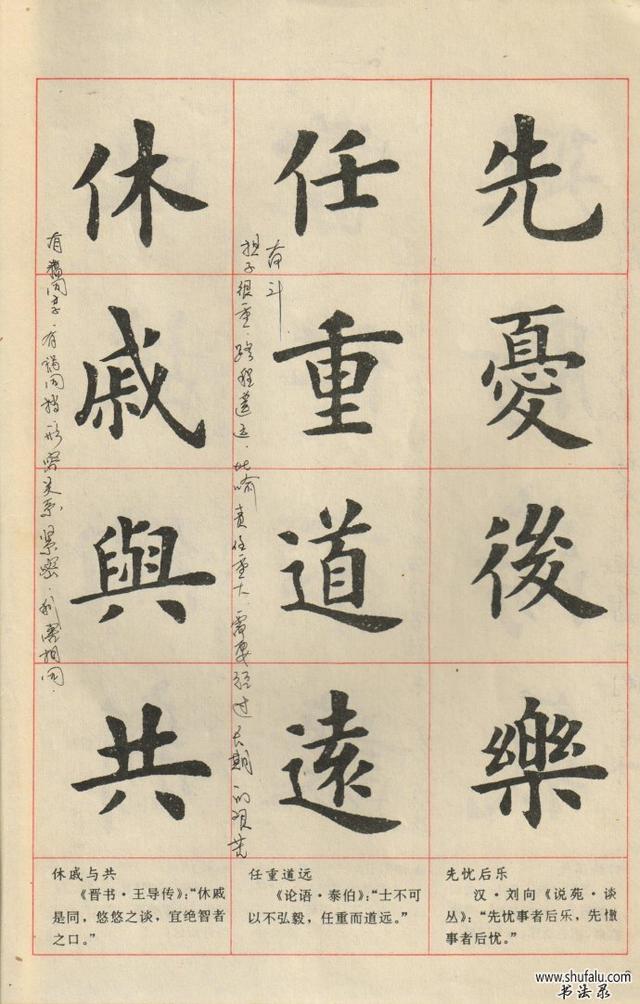 先憂後樂
任重道遠
休戚與共
担子很重．路程遥远．比喻责任重大．需要经过长期的艰苦
奋斗
有福同享．有祸同当．形容关系紧密．利害相同．
先忧后乐
汉·刘向《说苑·谈
丛》：“先忧事者后乐，先
事者后忧。”
任重道远
《论语·泰伯》：“士不可
以不弘毅，任重而道远。”
休戚与共
《晋书·王导传》：“休戚
是同，悠悠之谈，宜绝智者
之口。”
www.shufalu.com
书法录